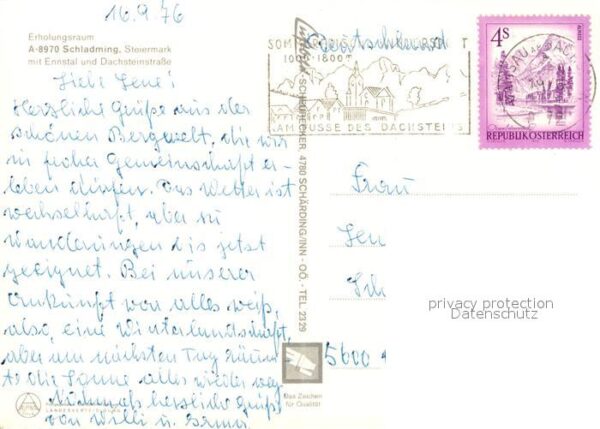 16.9.76
Erholungsraum
A-8970 Schladming, Steiermark
mit Ennstal und Dachsteinstraße
Liebe Lene!
Herzliche Grüße aus der
schönen Bergwelt, die wir
in froher Gemeinschaft er-
leben dürfen. Das Wetter ist
wechselhaft, aber zu
Wanderungen bis jetzt
geeignet. Bei unserer
Ankunft war alles weiß,
also, eine Winterlandschaft,
aber am nächsten Tag räum
te die Sonne alles wieder weg
Nochmals herzliche Grüße
von Willi u.
SCHÄRDING/INN - OÖ. - TEL. 2329
4780
Das Zeichen
für Qualität
Deutschland
1000-1800
AM FUSSE DES DACHSTEINS
4S
REPUBLIK ÖSTERREICH
Frau
5600
privacy protection
Datenschutz